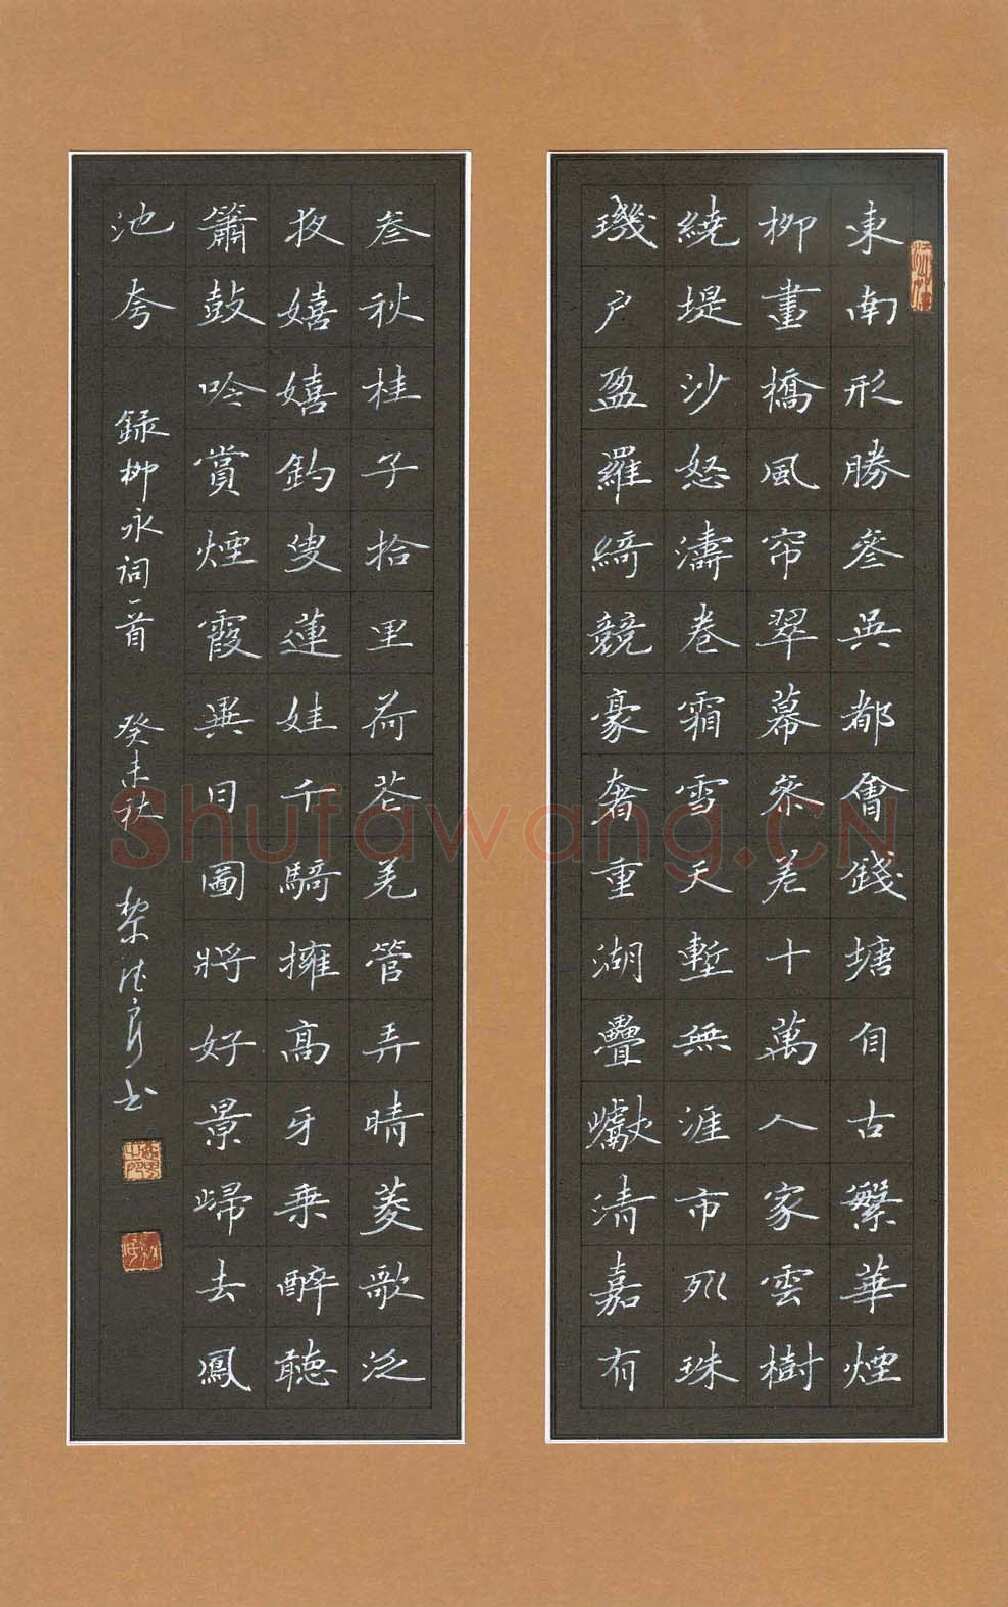 東南形勝叁吳都會錢塘自古繁華煙
柳畫橋風帘翠幕參差十萬人家雲樹
繞堤沙怒濤卷霜雪天塹無涯市列珠
璣户盈羅綺競豪奢重湖疊巘清嘉有
叁秋桂子拾里荷花羌管弄晴菱歌泛
夜嬉嬉釣叟蓮娃千騎擁高牙乘醉聽
簫鼓吟賞煙霞異日圖將好景歸去鳳
池夸 録柳永詞一首 癸未秋 書
Shufawang.CN